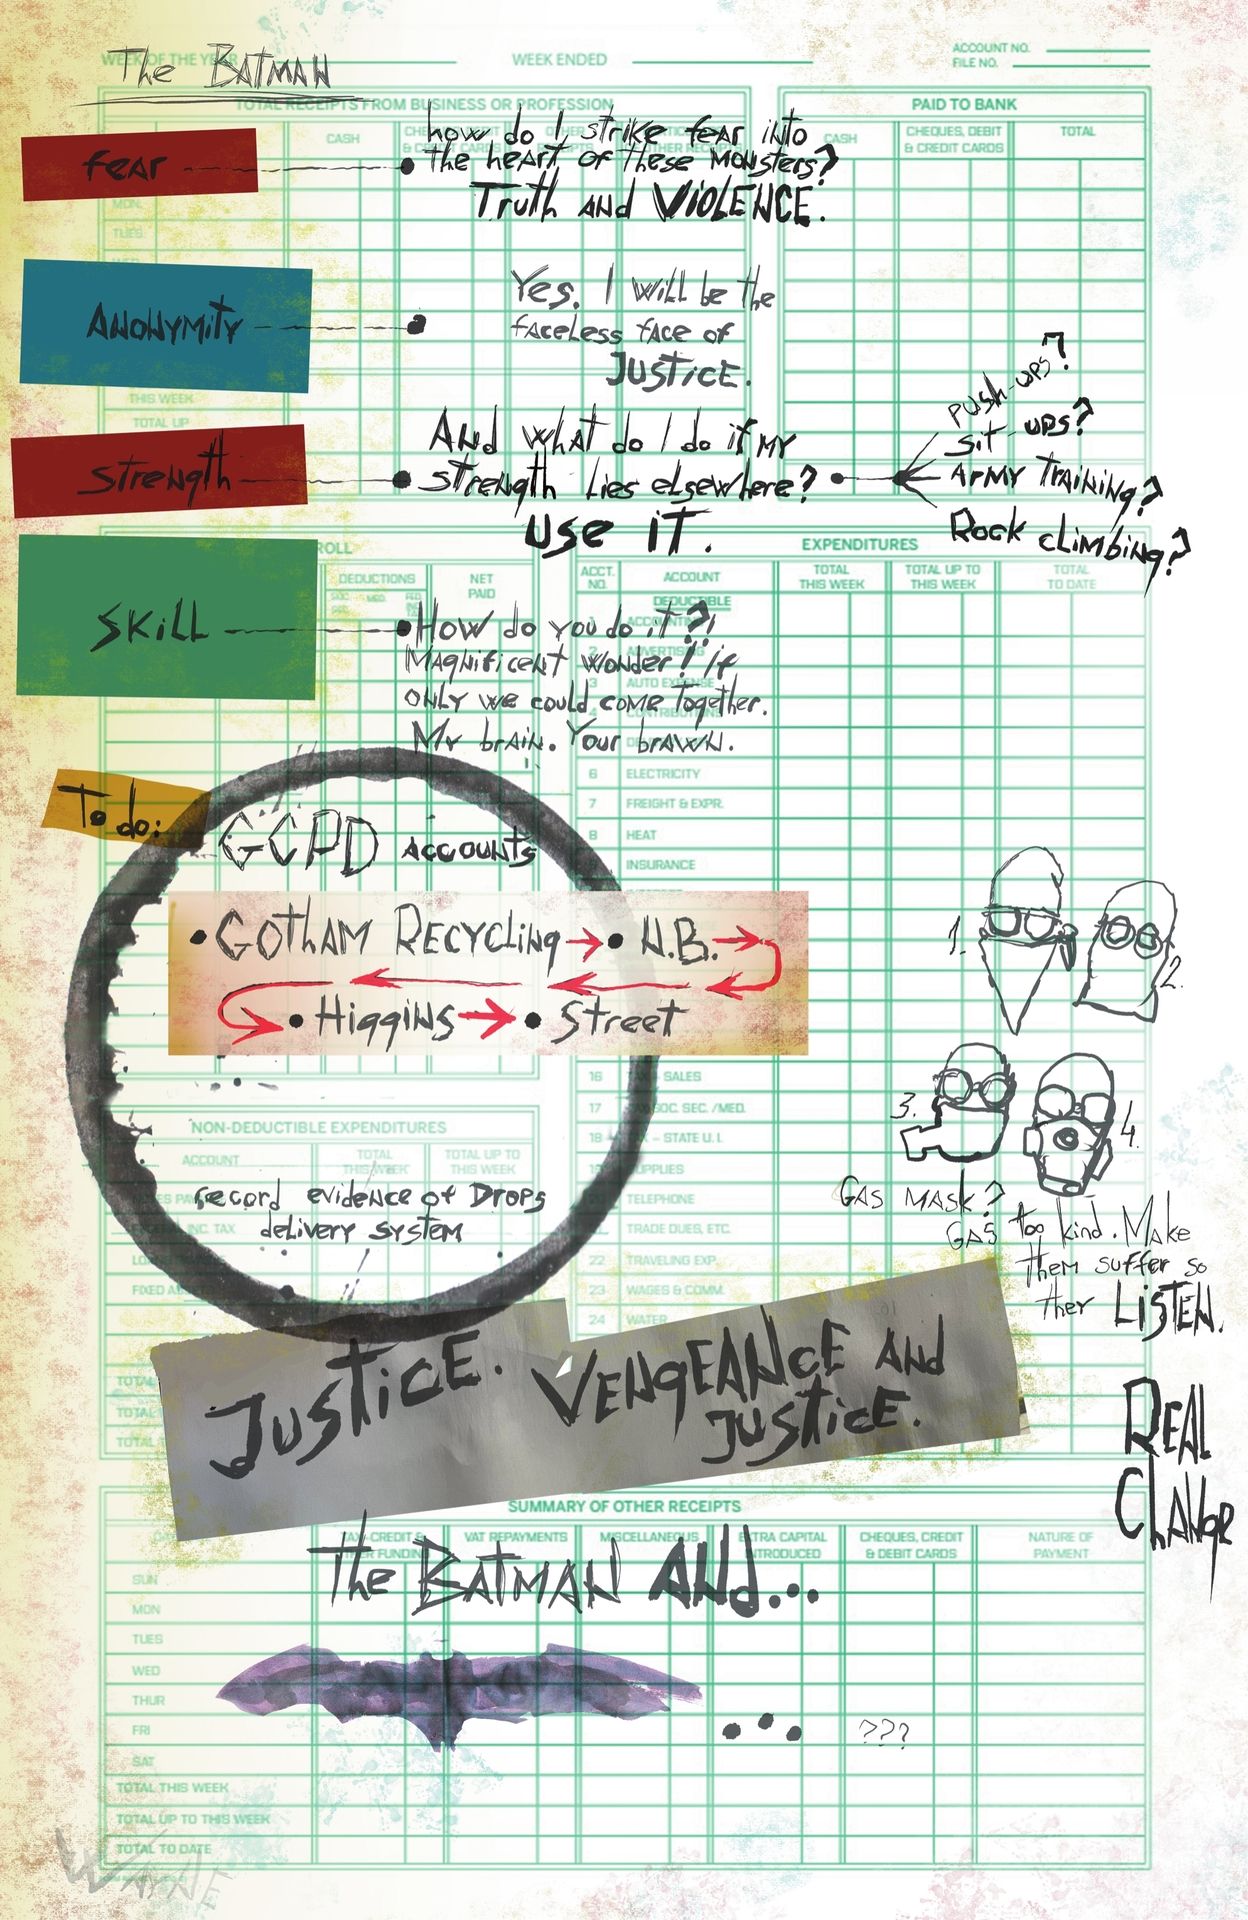 The BATMAN
WEEK OF THE YEAR
WEEK ENDED
ACCOUNT NO.
FILE NO.
TOTAL RECEIPTS FROM BUSINESS OR PROFESSION
PAID TO BANK
CASH
CASH
CHEQUES, DEBIT
& CREDIT CARDS
TOTAL
fear
how do I strike fear into
the heart of these monsters?
Truth and VIOLENCE.
MON.
TUES
Anonymity
Yes. I will be the
faceless face of
JUSTICE.
THIS WEEK
TOTAL UP
Strength
And what do I do if my
strength lies elsewhere?
use it.
Push-ups?
Sit-ups?
Army training?
Rock climbing?
EXPENDITURES
DEDUCTIONS
NET
PAID
ACCT.
NO.
ACCOUNT
TOTAL
THIS WEEK
TOTAL UP TO
THIS WEEK
TOTAL
TO DATE
DEDUCTIBLE
Skill
How do you do it?!
Magnificent wonder! If
only we could come together.
My brain. Your brawn.
1 ACCOUNTING
2 ADVERTISING
3 AUTO EXPENSE
4 CONTRIBUTIONS
6 ELECTRICITY
7 FREIGHT & EXPR.
8 HEAT
INSURANCE
To do:
GCPD accounts
• Gotham Recycling → • N.B. →
• Higgins → • Street
1.
2.
3.
4.
16 TAX - SALES
17 TAX - SOC. SEC. /MED.
18 TAX - STATE U. I.
19 SUPPLIES
20 TELEPHONE
TRADE DUES, ETC.
22 TRAVELING EXP.
23 WAGES & COMM.
24 WATER
NON-DEDUCTIBLE EXPENDITURES
ACCOUNT
TOTAL
THIS WEEK
TOTAL UP TO
THIS WEEK
record evidence of Drops
delivery system
INC. TAX
FIXED ASSETS
Gas mask?
Gas too kind. Make
them suffer so
they LISTEN.
JUSTICE. VENGEANCE AND
JUSTICE.
REAL
CHANGE
SUMMARY OF OTHER RECEIPTS
VAT REPAYMENTS
MISCELLANEOUS
EXTRA CAPITAL
INTRODUCED
CHEQUES, CREDIT
& DEBIT CARDS
NATURE OF
PAYMENT
The BATMAN AND...
SUN
MON
TUES
WED
THUR
FRI
• • • ???
SAT
TOTAL THIS WEEK
TOTAL UP TO THIS WEEK
TOTAL TO DATE
WAYNE